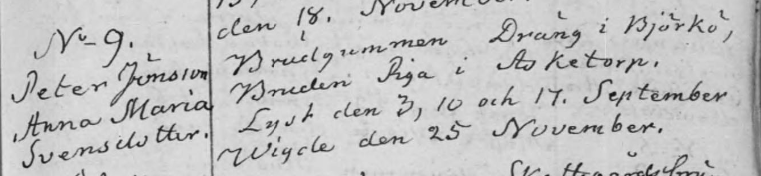 den 18. November
No 9.
Peter Jönsson
Anna Maria
Svensdotter.
Brudgummen Dräng i Björkö,
Bruden Piga i Asketorp.
Lyst den 3, 10 och 17. September
Wigde den 25 November.